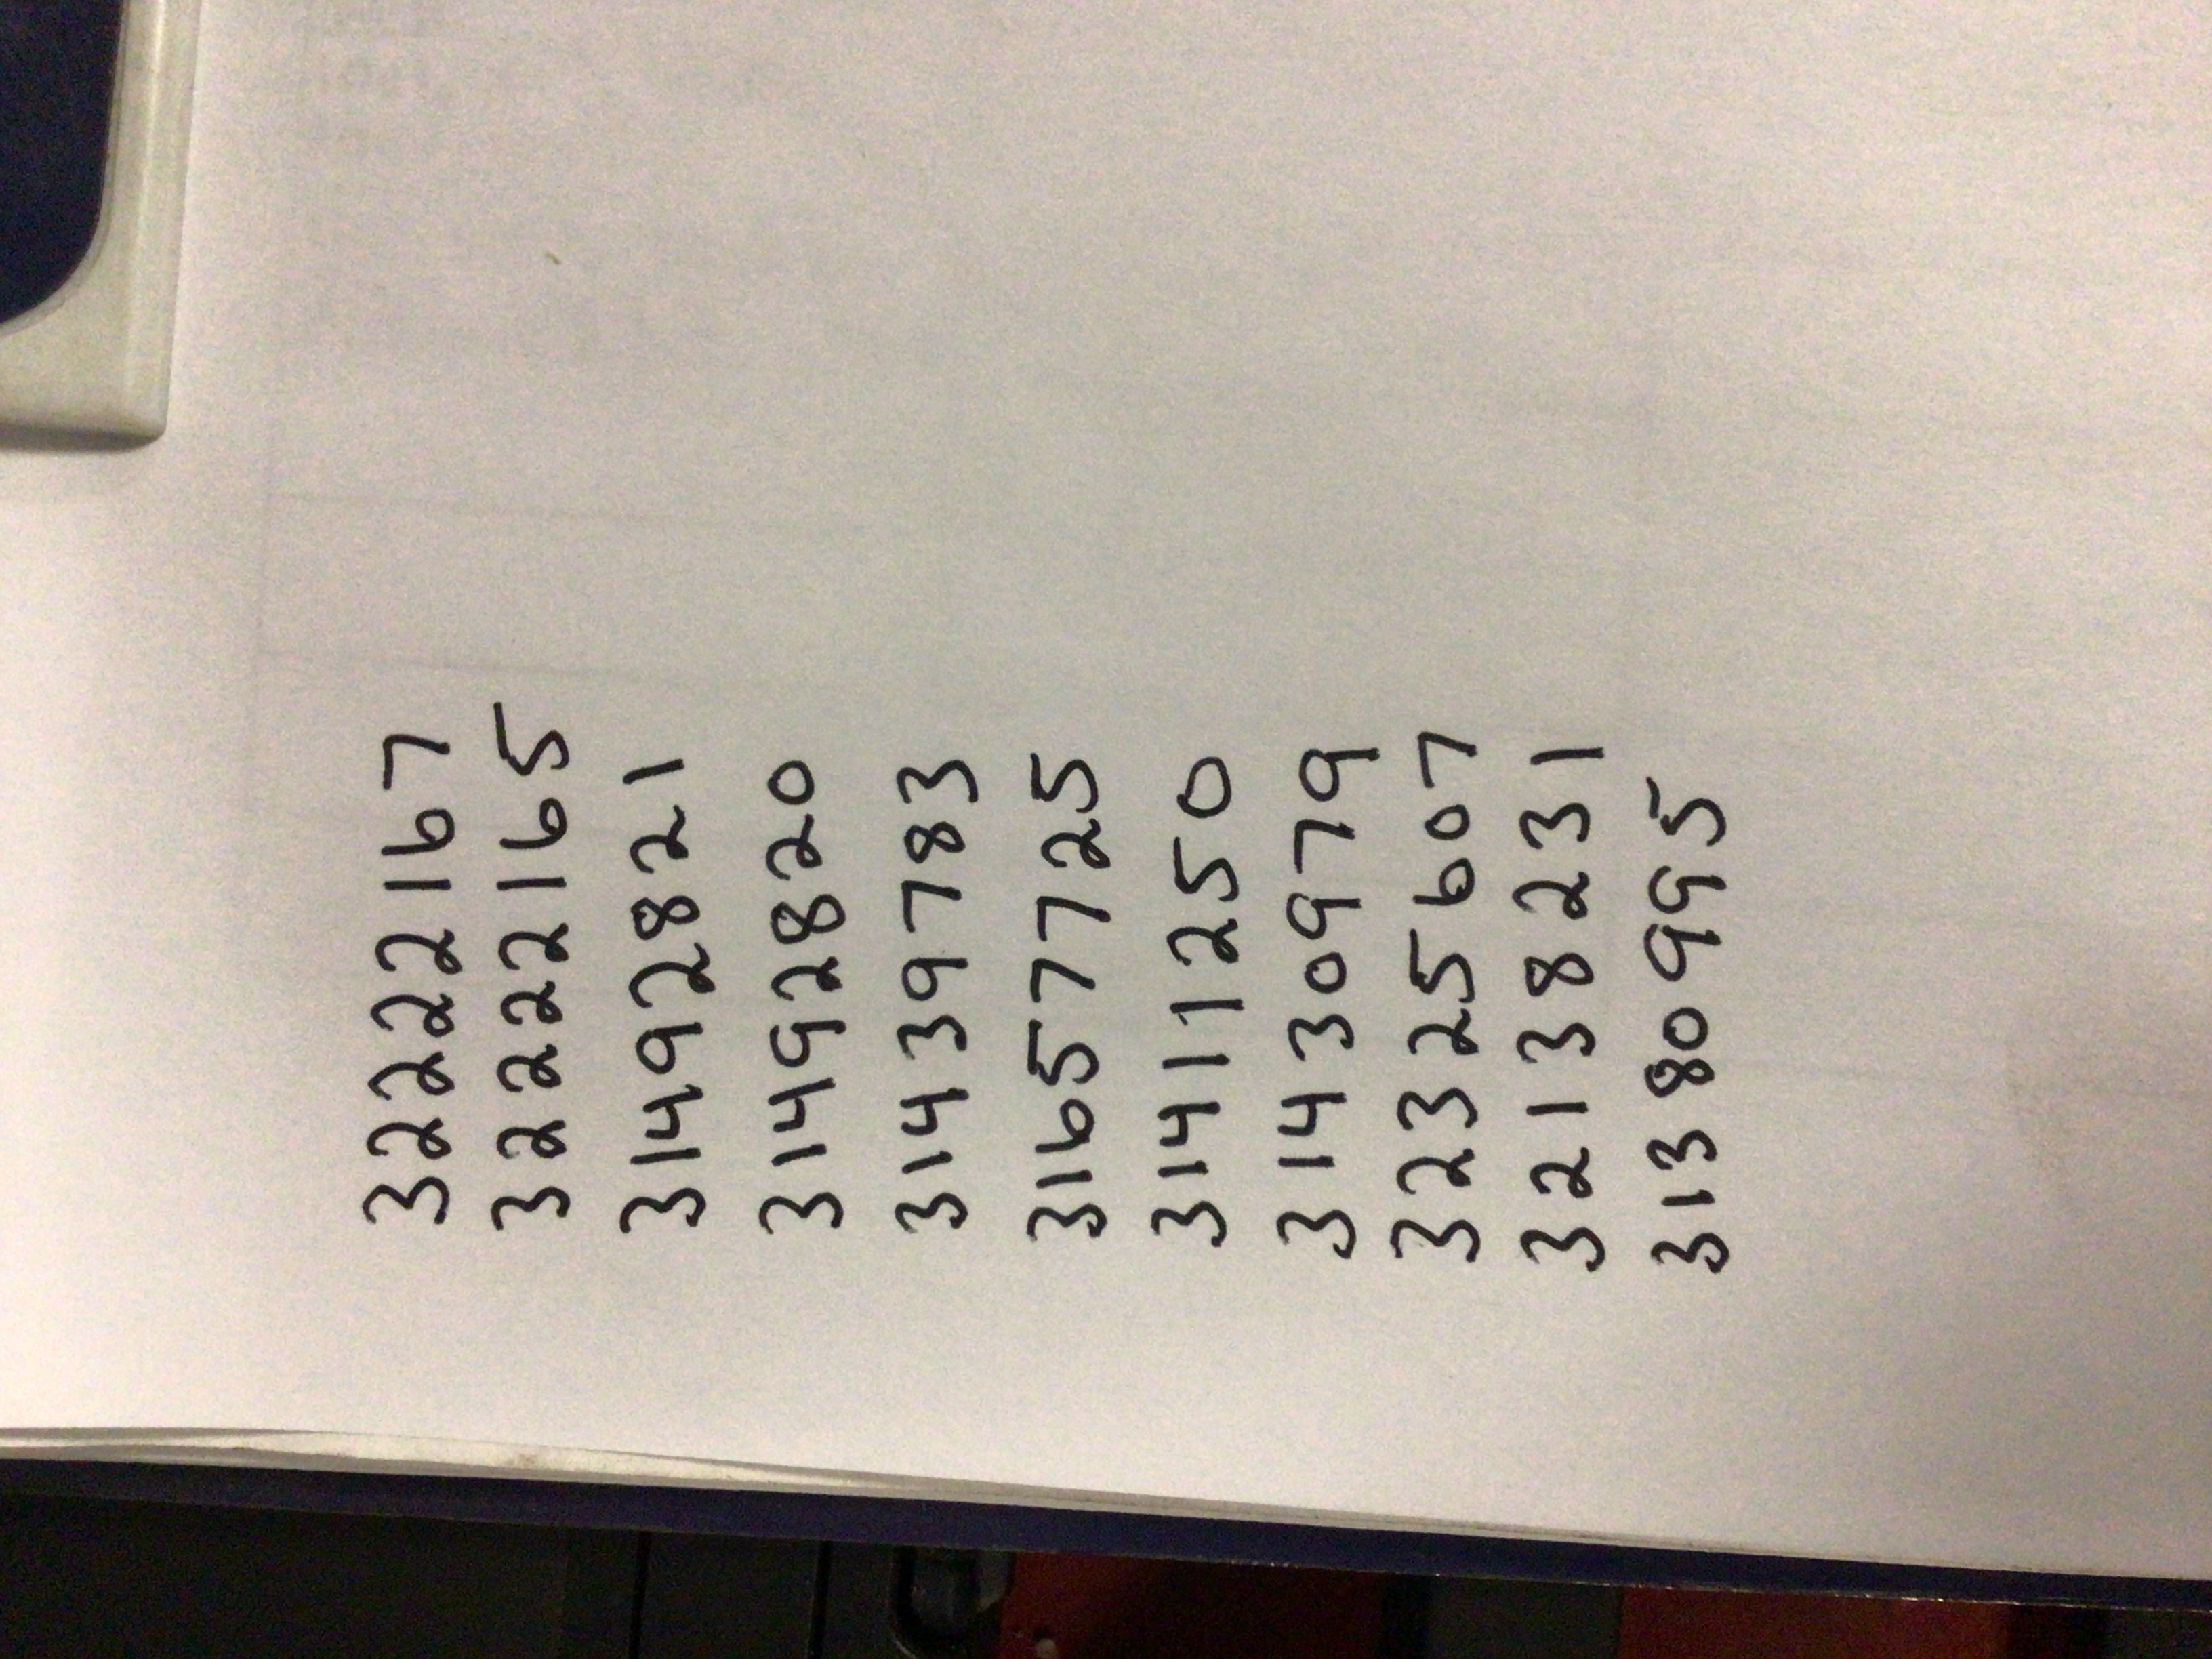 32222167
32222165
31492821
31492820
31439783
31657725
31411250
31430979
32325607
32138231
31380995